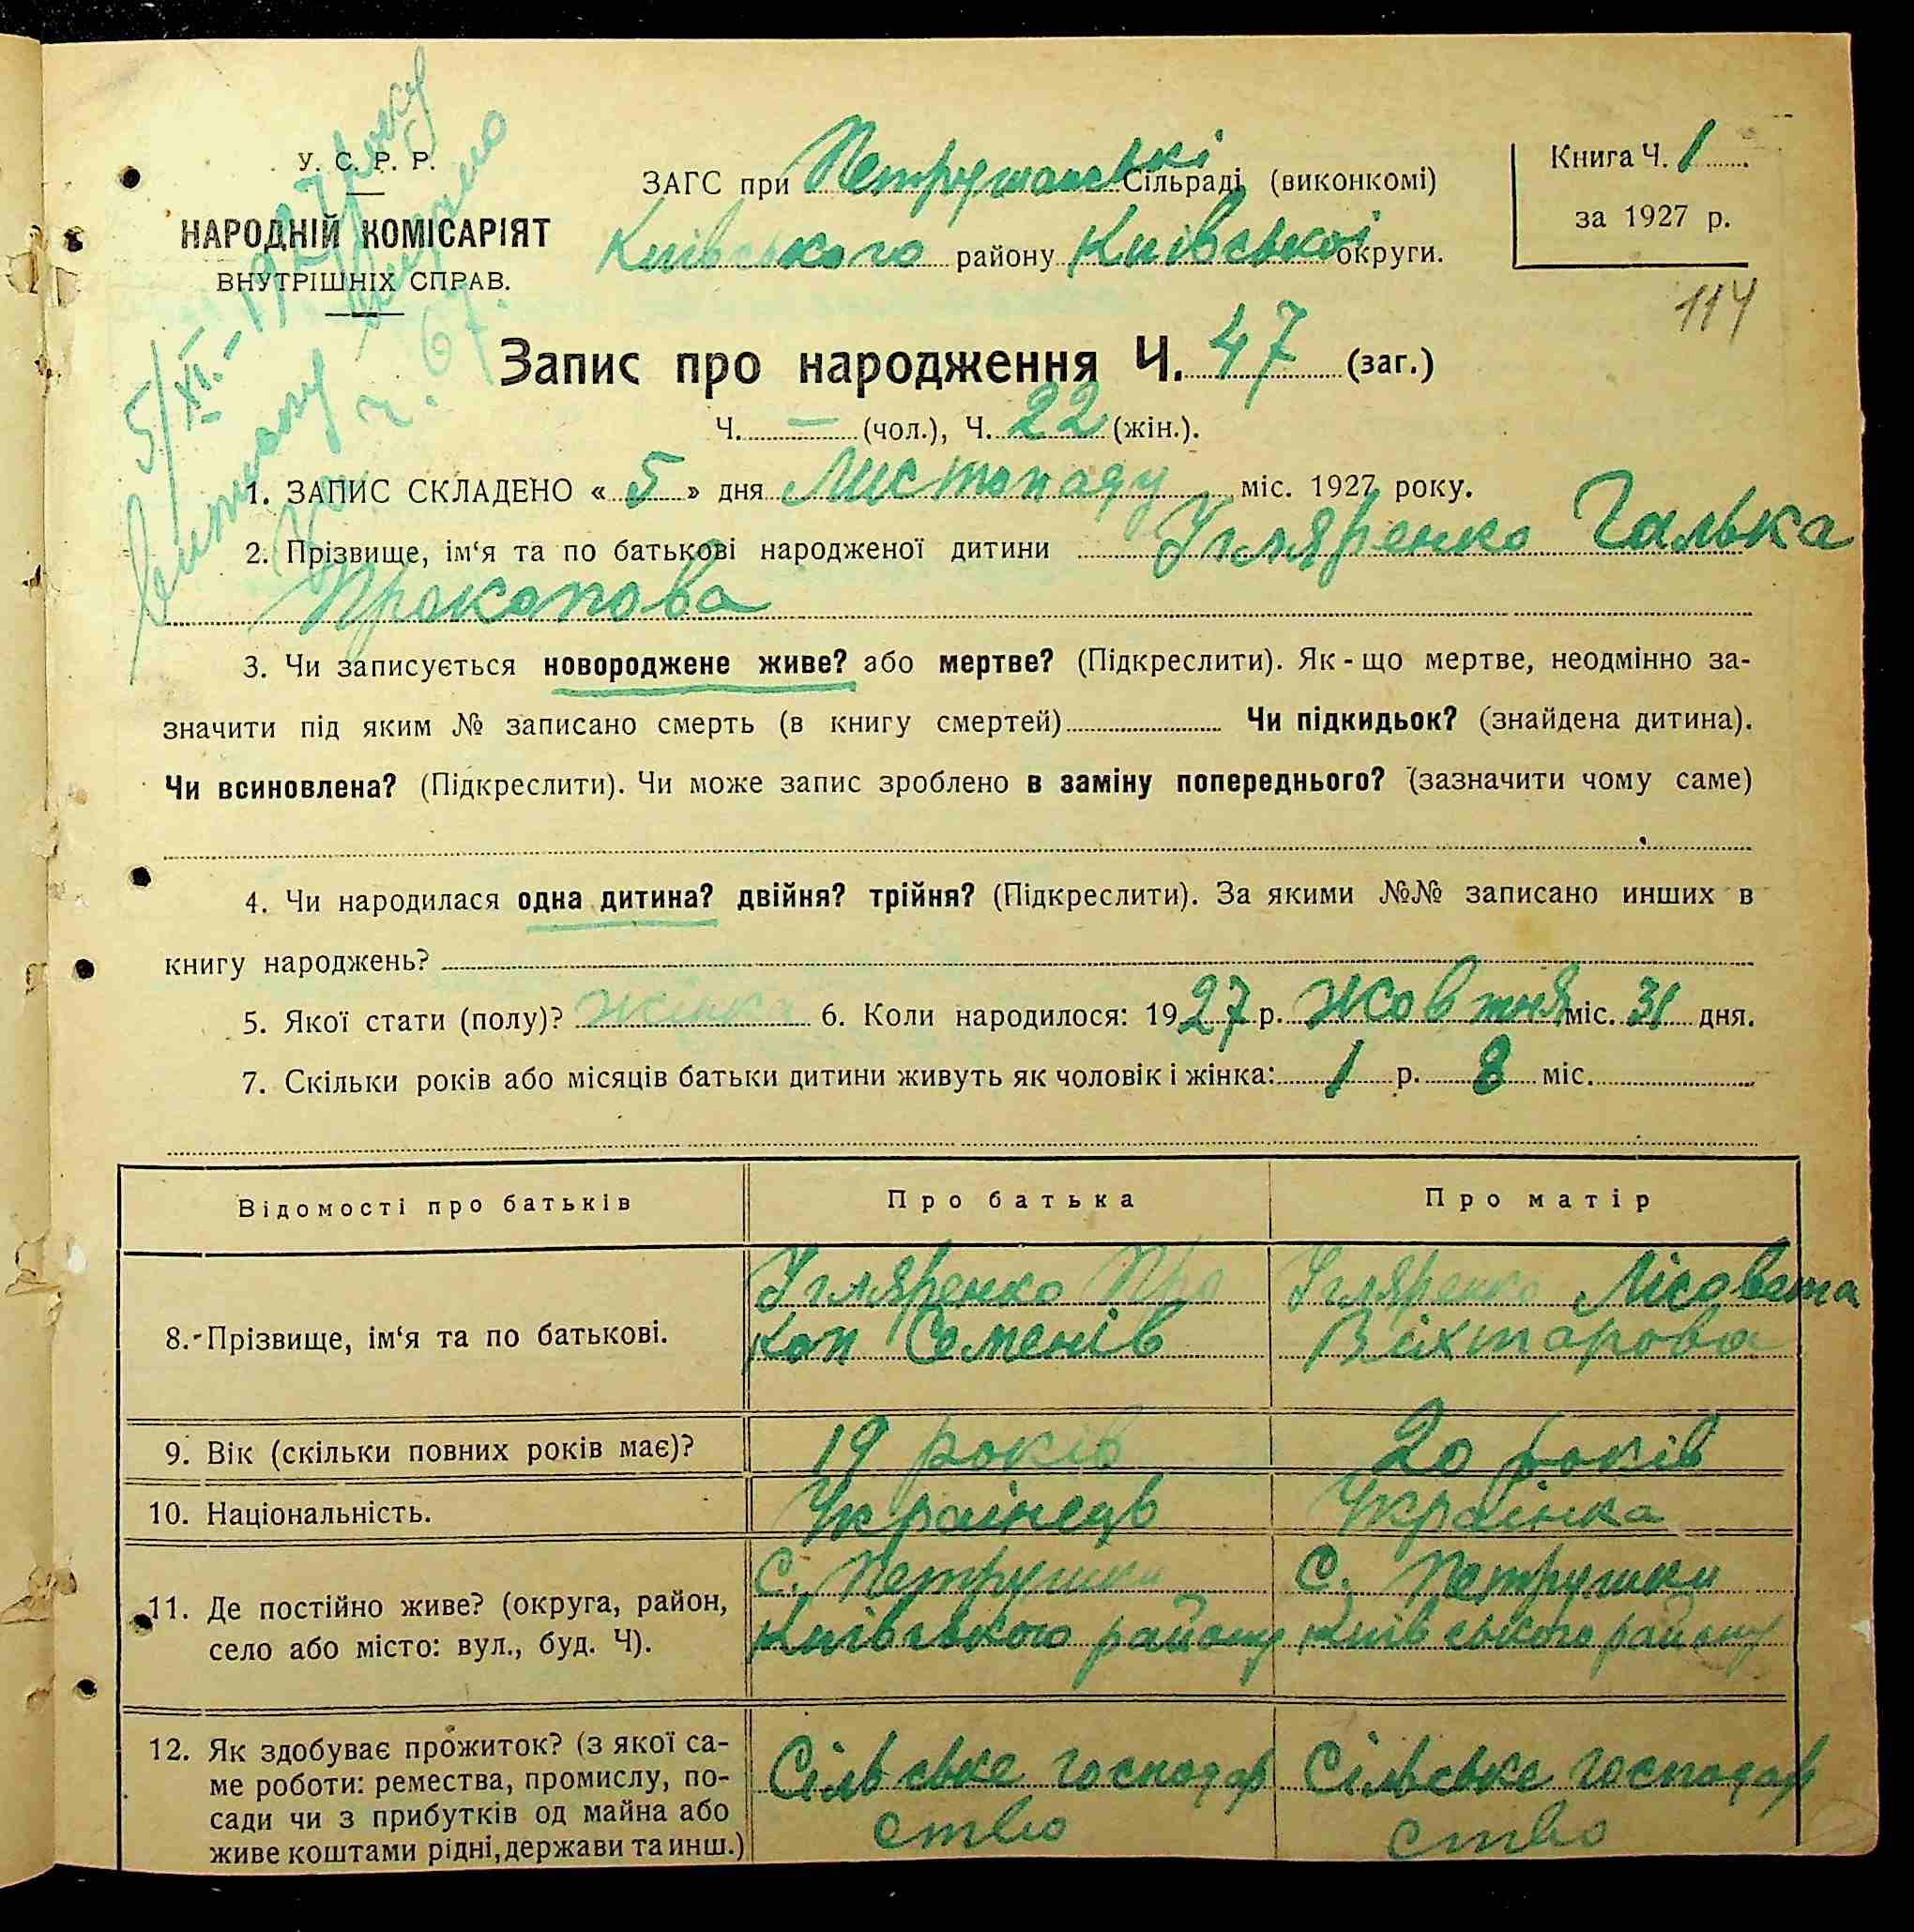 У. С. Р. Р.
НАРОДНІЙ КОМІСАРІЯТ
ВНУТРІШНІХ СПРАВ.
5/XI.-1927 року
Витяг видано
ч. 67.
ЗАГС при Петрушанські Сільраді (виконкомі)
Київського району Київської округи.
Книга Ч. 1
за 1927 р.
114
Запис про народження Ч. 47 (заг.)
Ч. — (чол.), Ч. 22 (жін.).
1. ЗАПИС СКЛАДЕНО « 5 » дня Листопаду міс. 1927 року.
2. Прізвище, ім‘я та по батькові народженої дитини Ігляренко Галька
Прокопова
3. Чи записується новороджене живе? або мертве? (Підкреслити). Як-що мертве, неодмінно за-
значити під яким № записано смерть (в книгу смертей) Чи підкидьок? (знайдена дитина).
Чи всиновлена? (Підкреслити). Чи може запис зроблено в заміну попереднього? (зазначити чому саме)
4. Чи народилася одна дитина? двійня? трійня? (Підкреслити). За якими №№ записано инших в
книгу народжень?
5. Якої стати (полу)? жінка 6. Коли народилося: 1927 р. Жовтня міс. 31 дня.
7. Скільки років або місяців батьки дитини живуть як чоловік і жінка: 1 р. 8 міс.
Відомості про батьків Про батька Про матір
8. Прізвище, ім‘я та по батькові.
Ігляренко Про
коп Семенів
Ігляренко Лісовета
Віхтарова
9. Вік (скільки повних років має)? 19 років 20 років
10. Національність. Українець Українка
11. Де постійно живе? (округа, район,
село або місто: вул., буд. Ч).
С. Петрушки
Київського району
С. Петрушки
Київського району
12. Як здобуває прожиток? (з якої са-
ме роботи: ремества, промислу, по-
сади чи з прибутків од майна або
живе коштами рідні, держави та инш.)
Сільське господар
ство
Сільське господар
ство